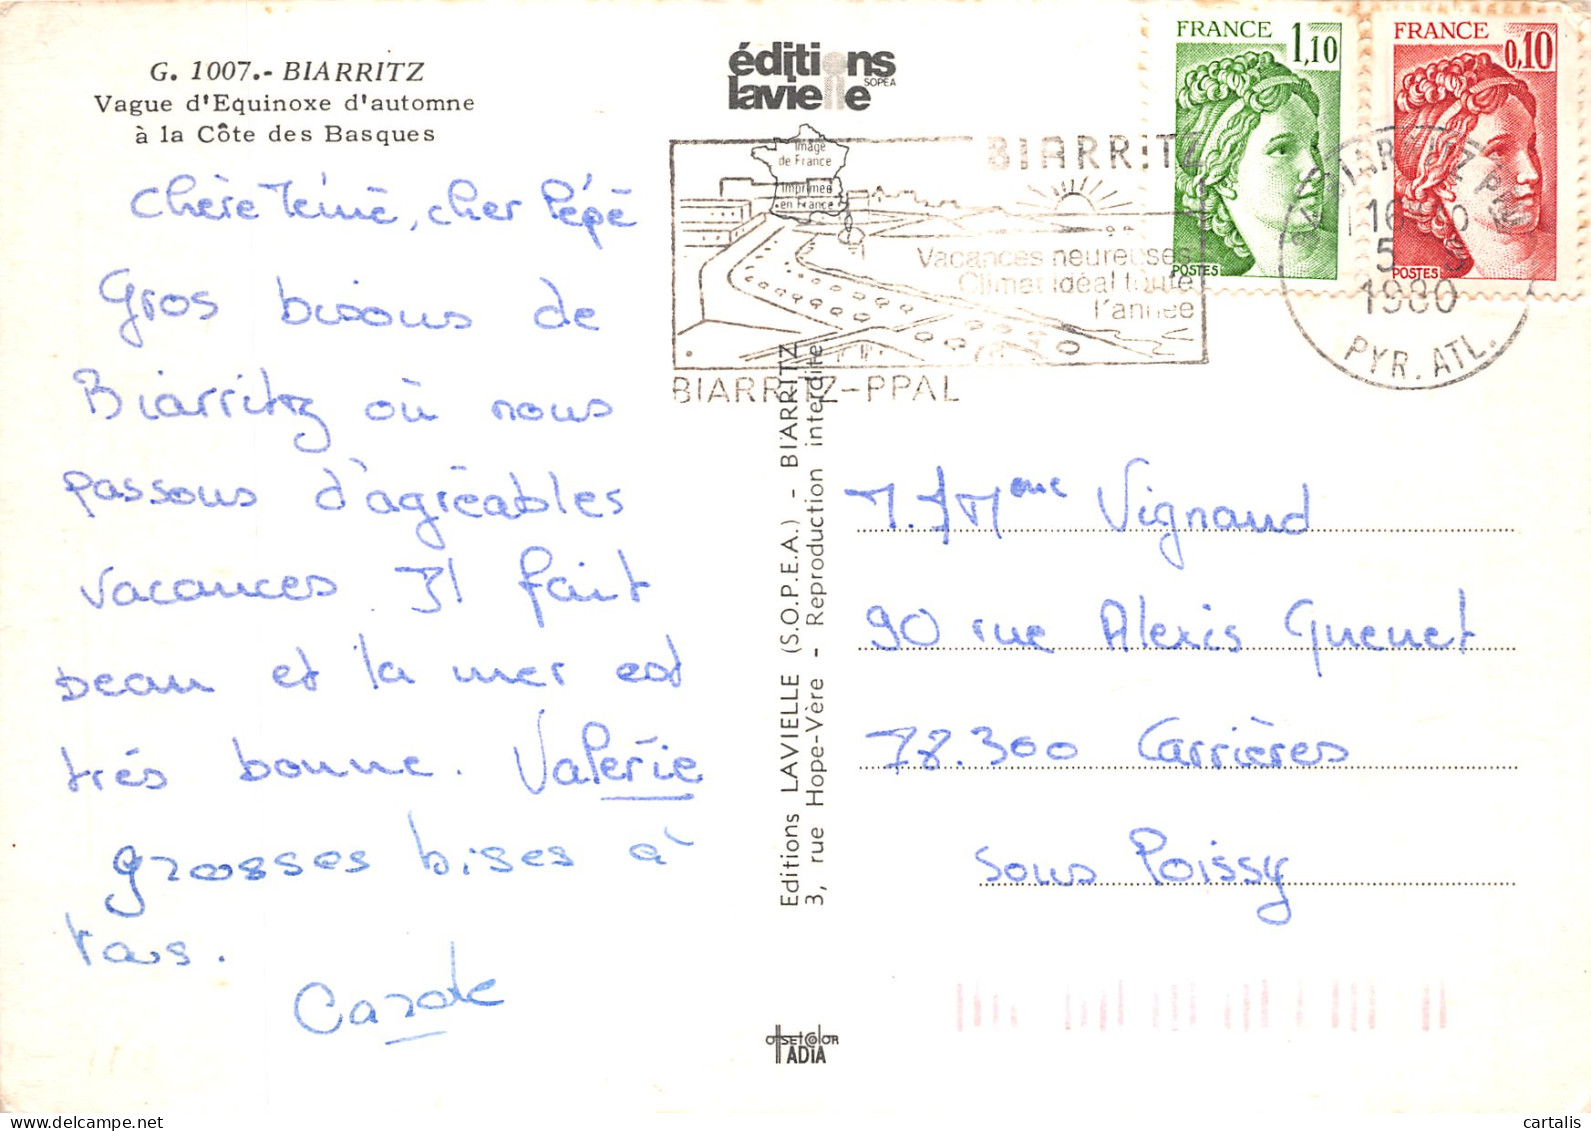 G. 1007.- BIARRITZ
Vague d'Equinoxe d'automne
à la Côte des Basques
éditions
lavielle
SOPEA
Image
de France
Imprimée
en France
FRANCE
1,10
POSTES
FRANCE
0,10
POSTES
BIARRITZ
Vacances heureuses
Climat idéal toute
l'année
BIARRITZ-PPAL
BIARRITZ PPAL
5
1980
PYR. ATL.
chère Mémé, cher Pépé
Gros bisous de
Biarritz où nous
passons d'agréables
vacances Il fait
beau et la mer est
très bonne. Valérie
grosses bises à
tous.
Carole
Editions LAVIELLE (S.O.P.E.A.) - BIARRITZ
3, rue Hope-Vère - Reproduction interdite
M. Mme Vignaud
90 rue Alexis Quenet
78.300 Carrières
sous Poissy
OffsetColor
ADIA
cartalis